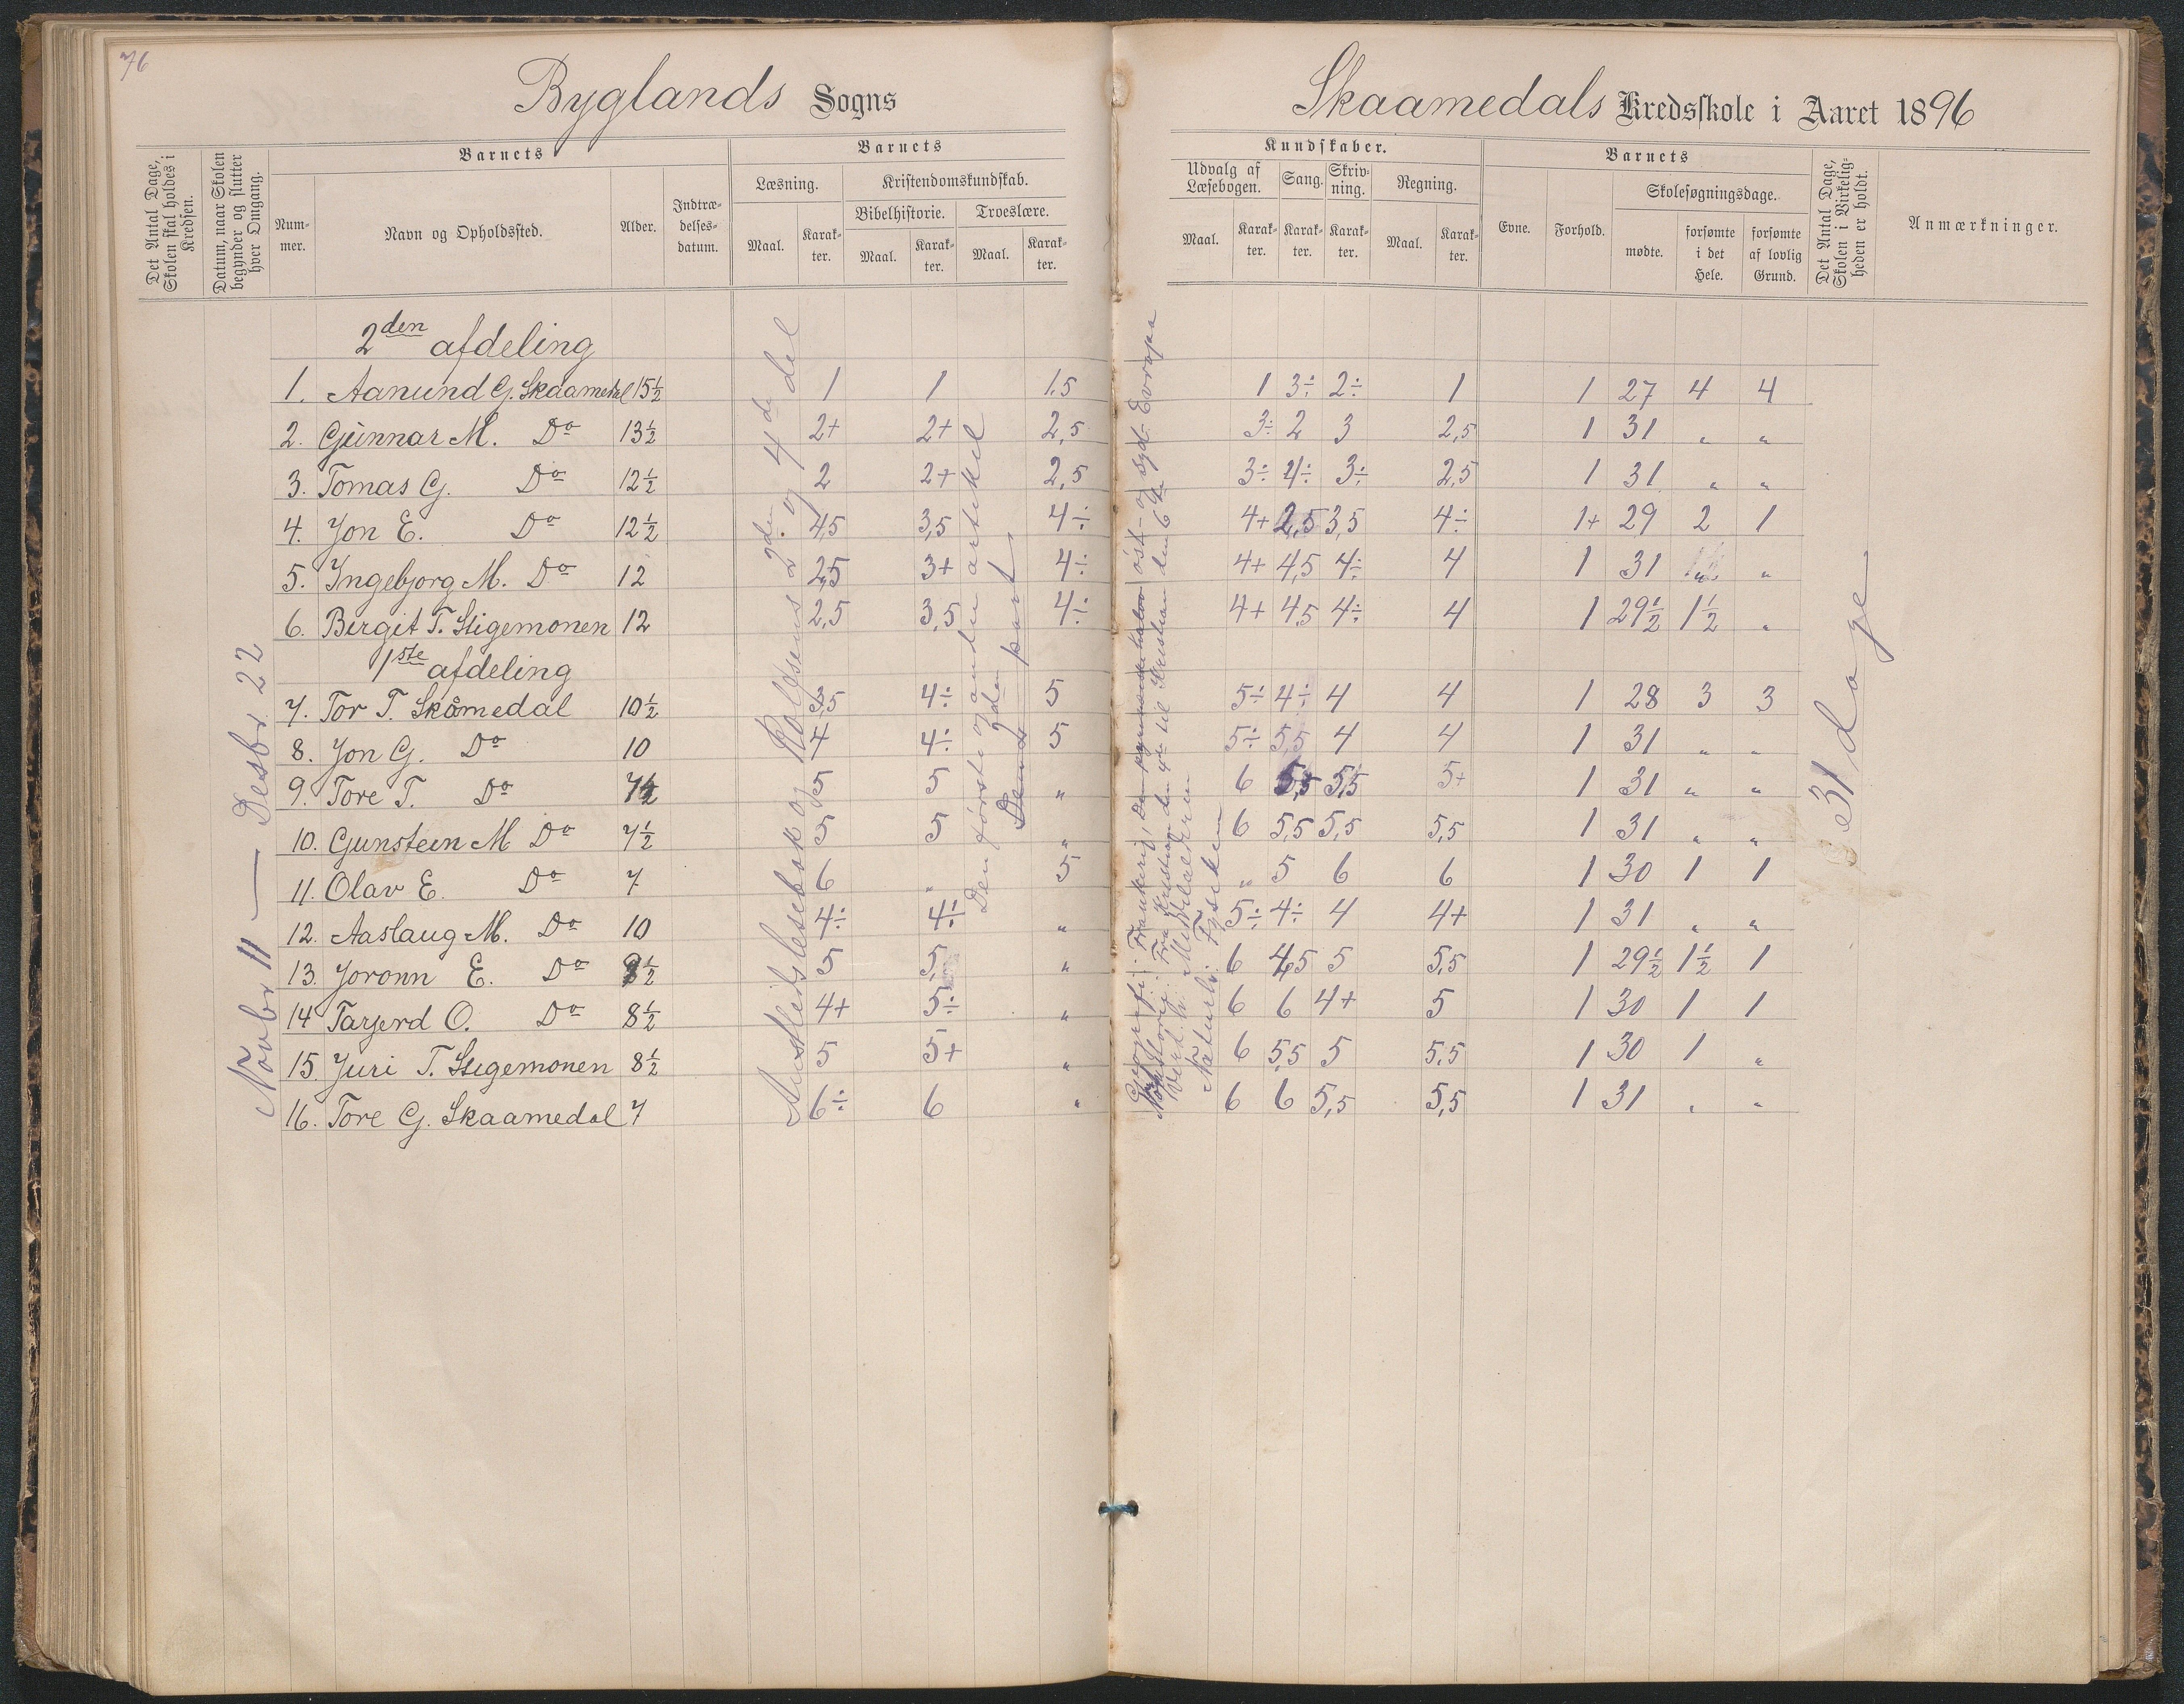 76
Byglands Sogns
Skaamedals Kredsskole i Aaret 1896
Det Antal Dage, Skolen skal holdes i Kredsen.
Datum, naar Skolen begynder og slutter hver Omgang.
Barnets
Nummer.
Navn og Opholdssted.
Alder.
Indtrædelsesdatum.
Barnets
Læsning.
Maal.
Karakter.
Kristendomskundskab.
Bibelhistorie.
Maal.
Karakter.
Troeslære.
Maal.
Karakter.
Kundskaber.
Udvalg af Læsebogen.
Maal.
Karakter.
Sang.
Karakter.
Skrivning.
Karakter.
Regning.
Maal.
Karakter.
Barnets
Evne.
Forhold.
Skolesøgningsdage.
mødte.
forsømte i det Hele.
forsømte af lovlig Grund.
Det Antal Dage, Skolen i Virkeligheden er holdt.
Anmærkninger.
Novbr 11 — Desbr. 22
2den afdeling
1. Aanund G. Skaamedal 15½ 1 1 1.5 1 3÷ 2÷ 1 1 27 4 4
2. Gunnar M. Do 13½ 2+ 2+ 2,5 3÷ 2 3 2,5 1 31 „ „
3. Tomas G. Do 12½ 2 2+ 2,5 3÷ 4÷ 3÷ 2,5 1 31 „ „
4. Jon E. Do 12½ 4,5 3,5 4÷ 4+ 2,5 3,5 4÷ 1+ 29 2 1
5. Ingebjorg M. Do 12 2,5 3+ 4÷ 4+ 4,5 4÷ 4 1 31 „ „
6. Birgit T. Stigemonen 12 2,5 3,5 4÷ 4+ 4,5 4÷ 4 1 29½ 1½ „
1ste afdeling
7. Tor T. Skåmedal 10½ 3,5 4÷ 5 5÷ 4÷ 4 4 1 28 3 3
8. Jon G. Do 10 4 4÷ 5 5÷ 5,5 4 4 1 31 „ „
9. Tore T. Do 7½ 5 5 „ 6 5,5 5,5 5+ 1 31 „ „
10. Gunsteen M Do 7½ 5 5 „ 6 5,5 5,5 5,5 1 31 „ „
11. Olav E. Do 7 6 „ 5 „ 5 6 6 1 30 1 1
12. Aaslaug M. Do 10 4÷ 4÷ „ 5÷ 4÷ 4 4+ 1 31 „ „
13. Joronn E. Do 9½ 5 5 „ 6 4,5 5 5,5 1 29½ 1½ 1
14 Tarjerd O. Do 8½ 4+ 5÷ „ 6 6 4+ 5 1 30 1 1
15. Juri T. Stigemonen 8½ 5 5+ „ 6 5,5 5 5,5 1 30 1 „
16. Tore G. Skaamedal 7 6÷ 6 „ 6 6 5,5 5,5 1 31 „ „
Austlids lesebok og Rolfsens 2den og 4de del
Den første og anden artikel
2den part
Geografi: Frankrig, Den pyrenæiske halvø øst- og syd-Evropa
Fra Kristian den 4de til Kristian den 6te
Middelalderen
Naturl. Fysiken
31 dage